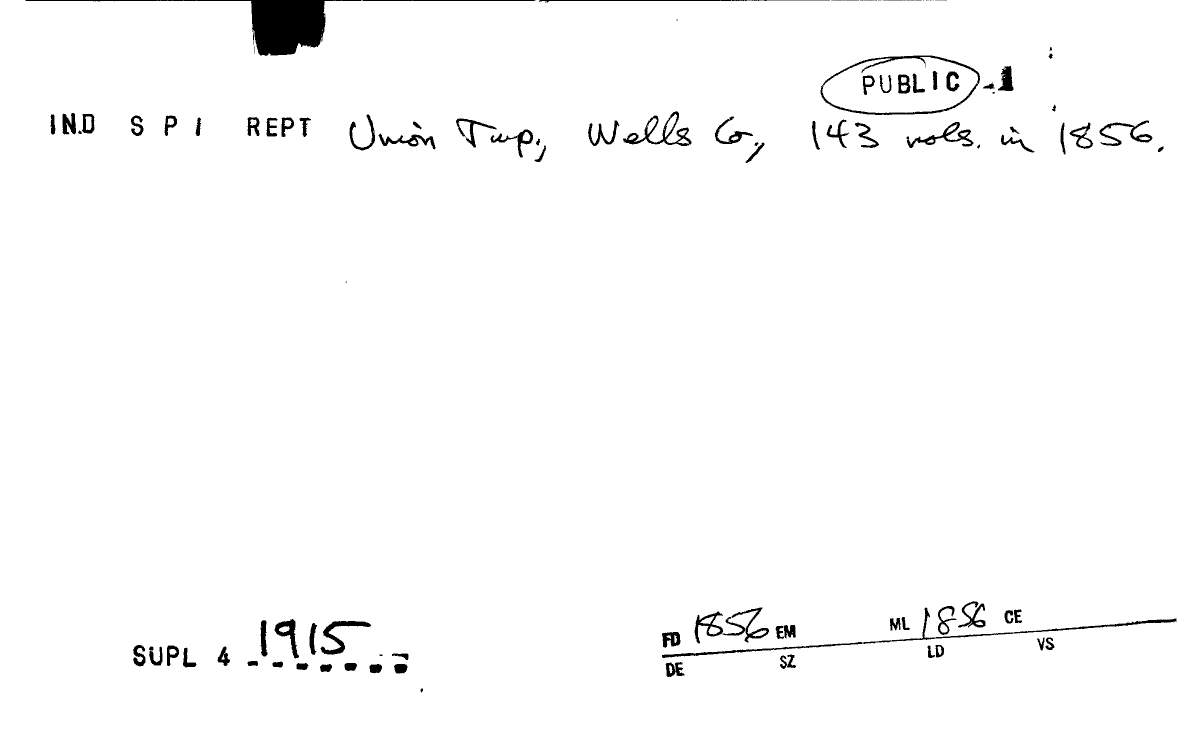 PUBLIC -1
IND S P I REPT Union Twp., Wells Co., 143 vols. in 1856.
SUPL 4 1915
FD 1856 EM ML 1856 CE
DE SZ LD VS